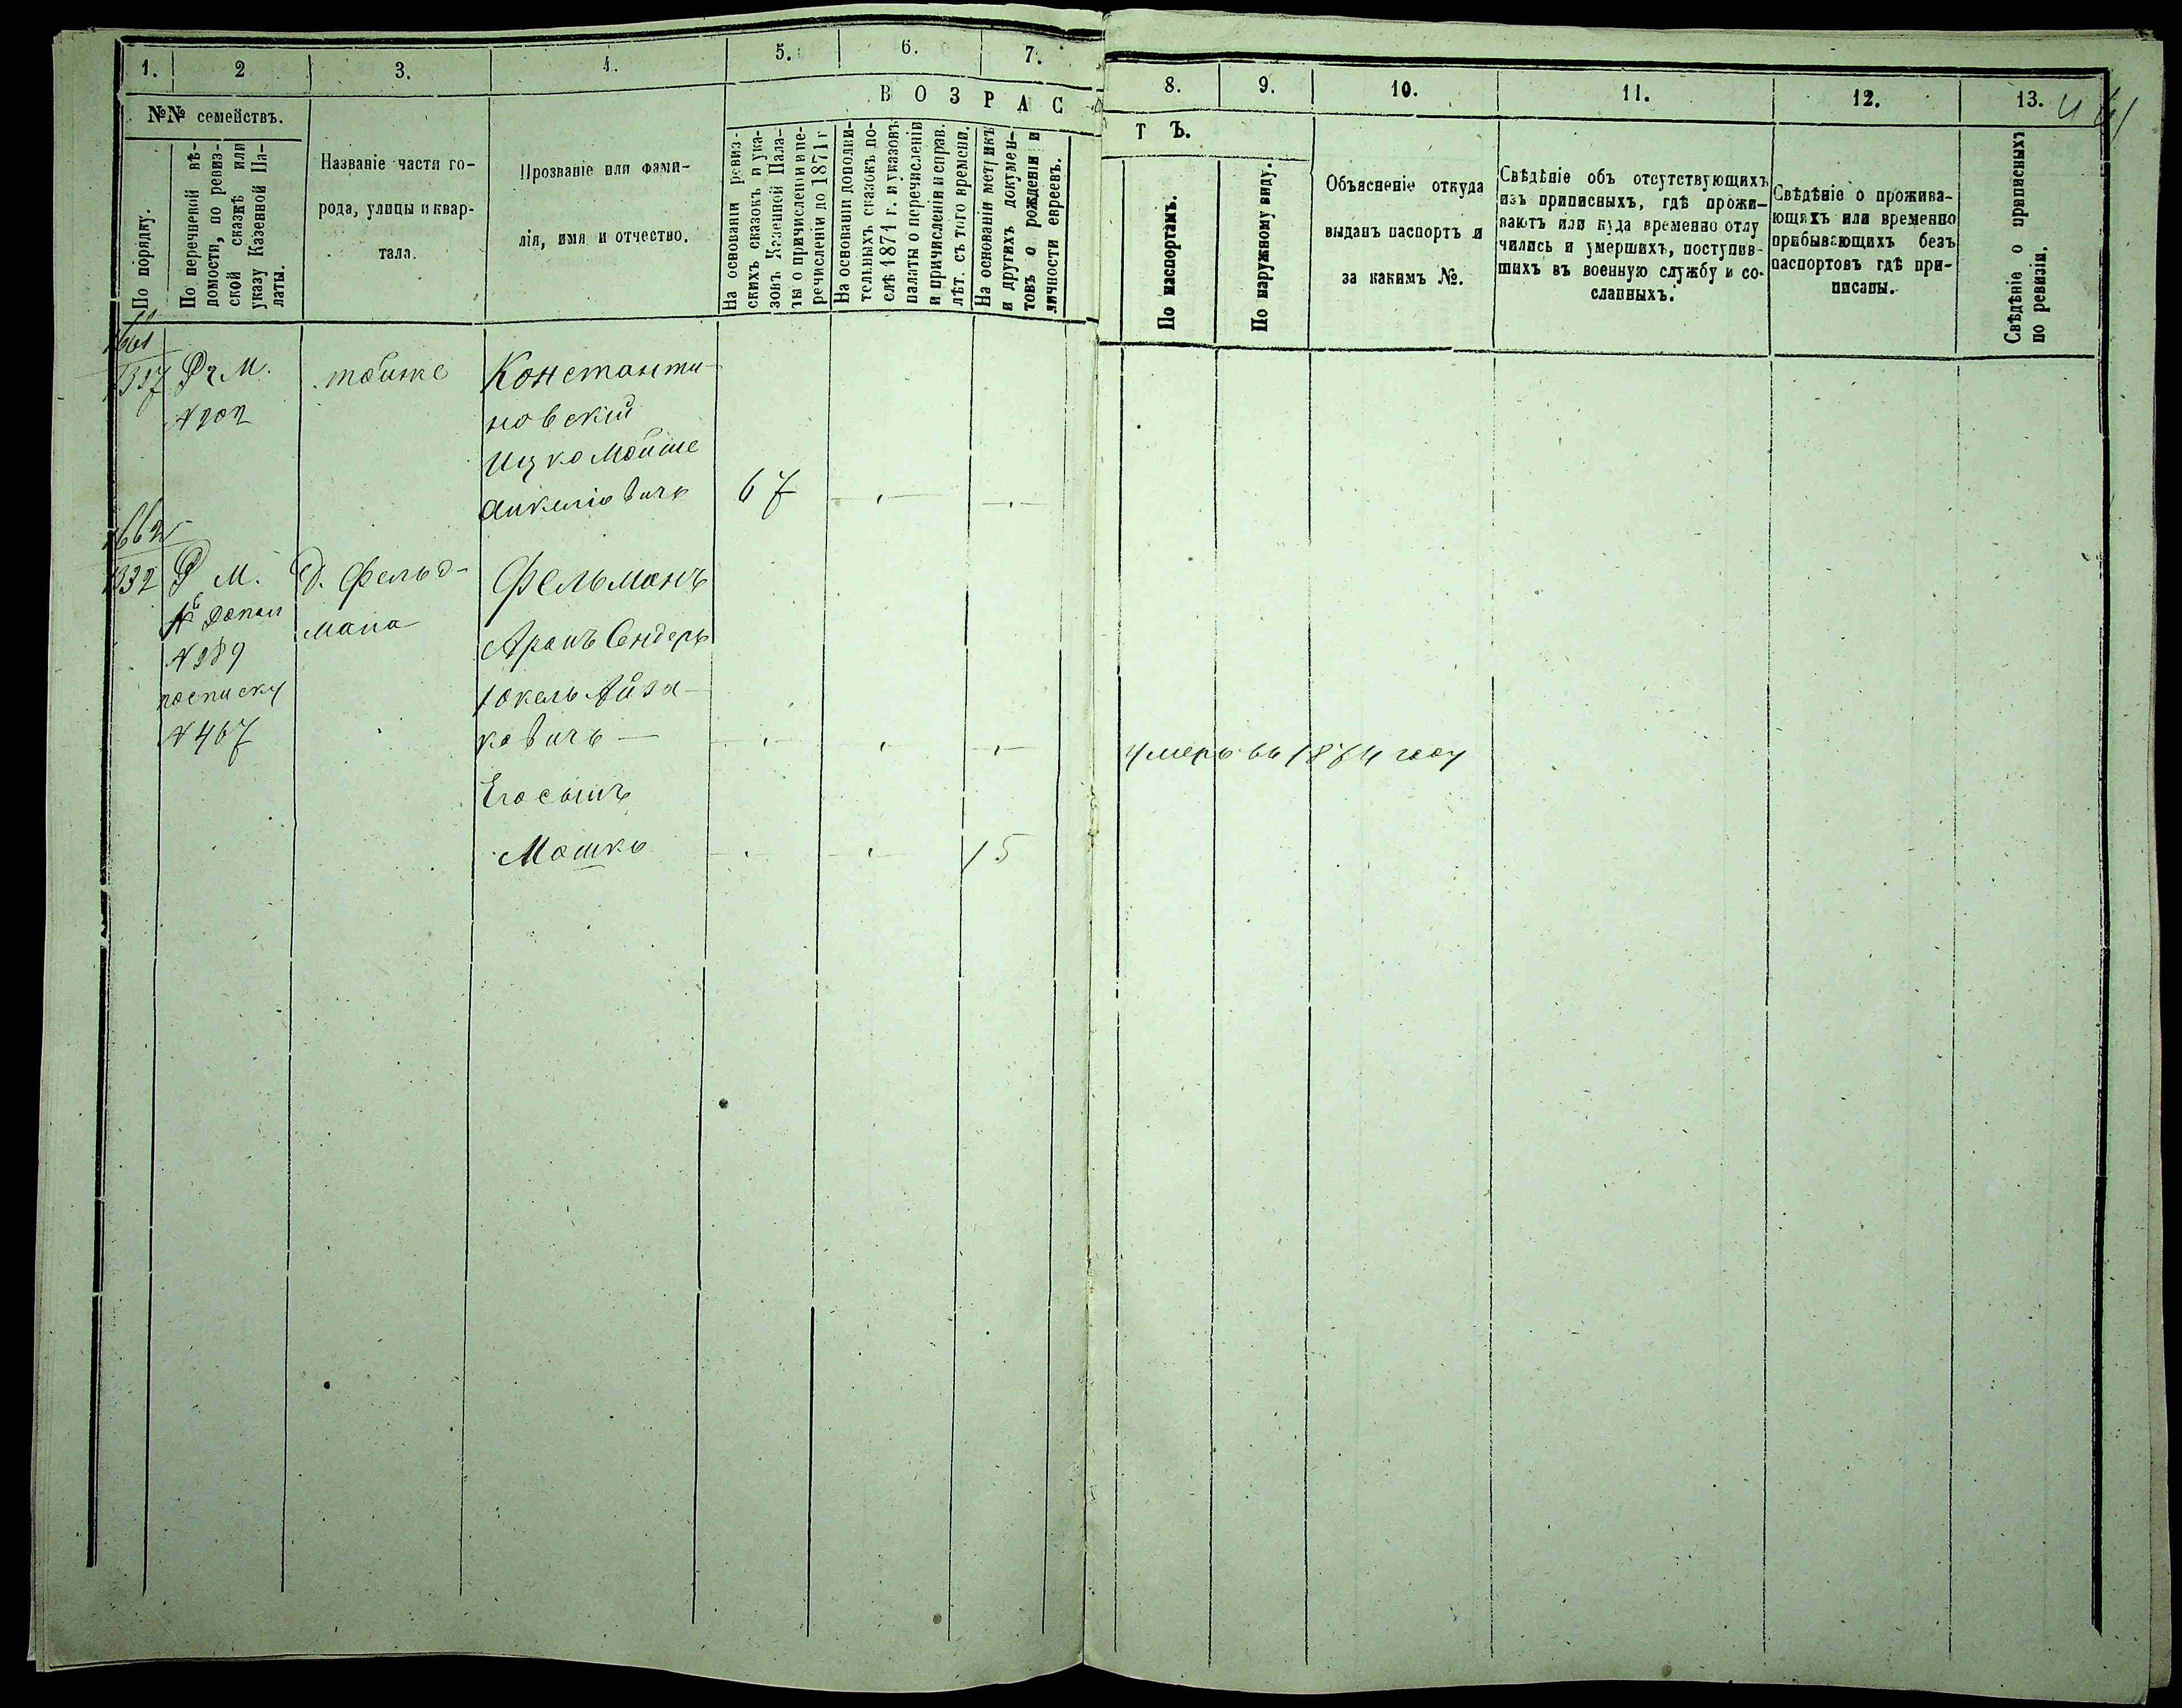 1.
2
3.
4.
5.
6.
7.
8.
9.
10.
11.
12.
13.
ВОЗРАС
ТЪ.
№№ семействъ.
По порядку.
По перечневой вѣ-
домости, по ревиз-
ской сказкѣ или
указу Казенной Па-
латы.
Названіе части го-
рода, улицы и квар-
тала.
Прозваніе или фами-
лія, имя и отчество.
На основаніи ревиз-
скихъ сказокъ и ука-
зовъ Казенной Пала-
ты о причисленіи и пе-
речисленіи до 1871 г
На основаніи дополни-
тельныхъ сказокъ по-
слѣ 1871 г. и указовъ
палаты о перечисленіи
и причисленіи и справ.
лѣт. съ того времени.
На основаніи метрикъ
и другихъ докумен-
товъ о рожденіи и
личности евреевъ.
По паспортамъ.
По наружному виду.
Объясненіе откуда
выданъ паспортъ и
за какимъ №.
Свѣдѣніе объ отсутствующихъ
изъ приписныхъ, гдѣ прожи-
ваютъ или куда временно отлу
чились и умершихъ, поступив-
шихъ въ военную службу и со-
сланныхъ.
Свѣдѣніе о прожива-
ющихъ или временно
прибывающихъ безъ
паспортовъ гдѣ при-
писаны.
Свѣдѣніе о приписныхъ
по ревизіи.
1661
М.
тоиже
Константи-
новскій
Ицко Мойше
Анкелiовичъ
67
1662
1332
М.
Д. Фельд-
мана
Допол
N 289
посписку
N 467
Фельманъ
Аронъ Сендеръ
Юкель Айзи-
ковичъ
умеръ въ 1874 году
Его сынъ
Мошко
15